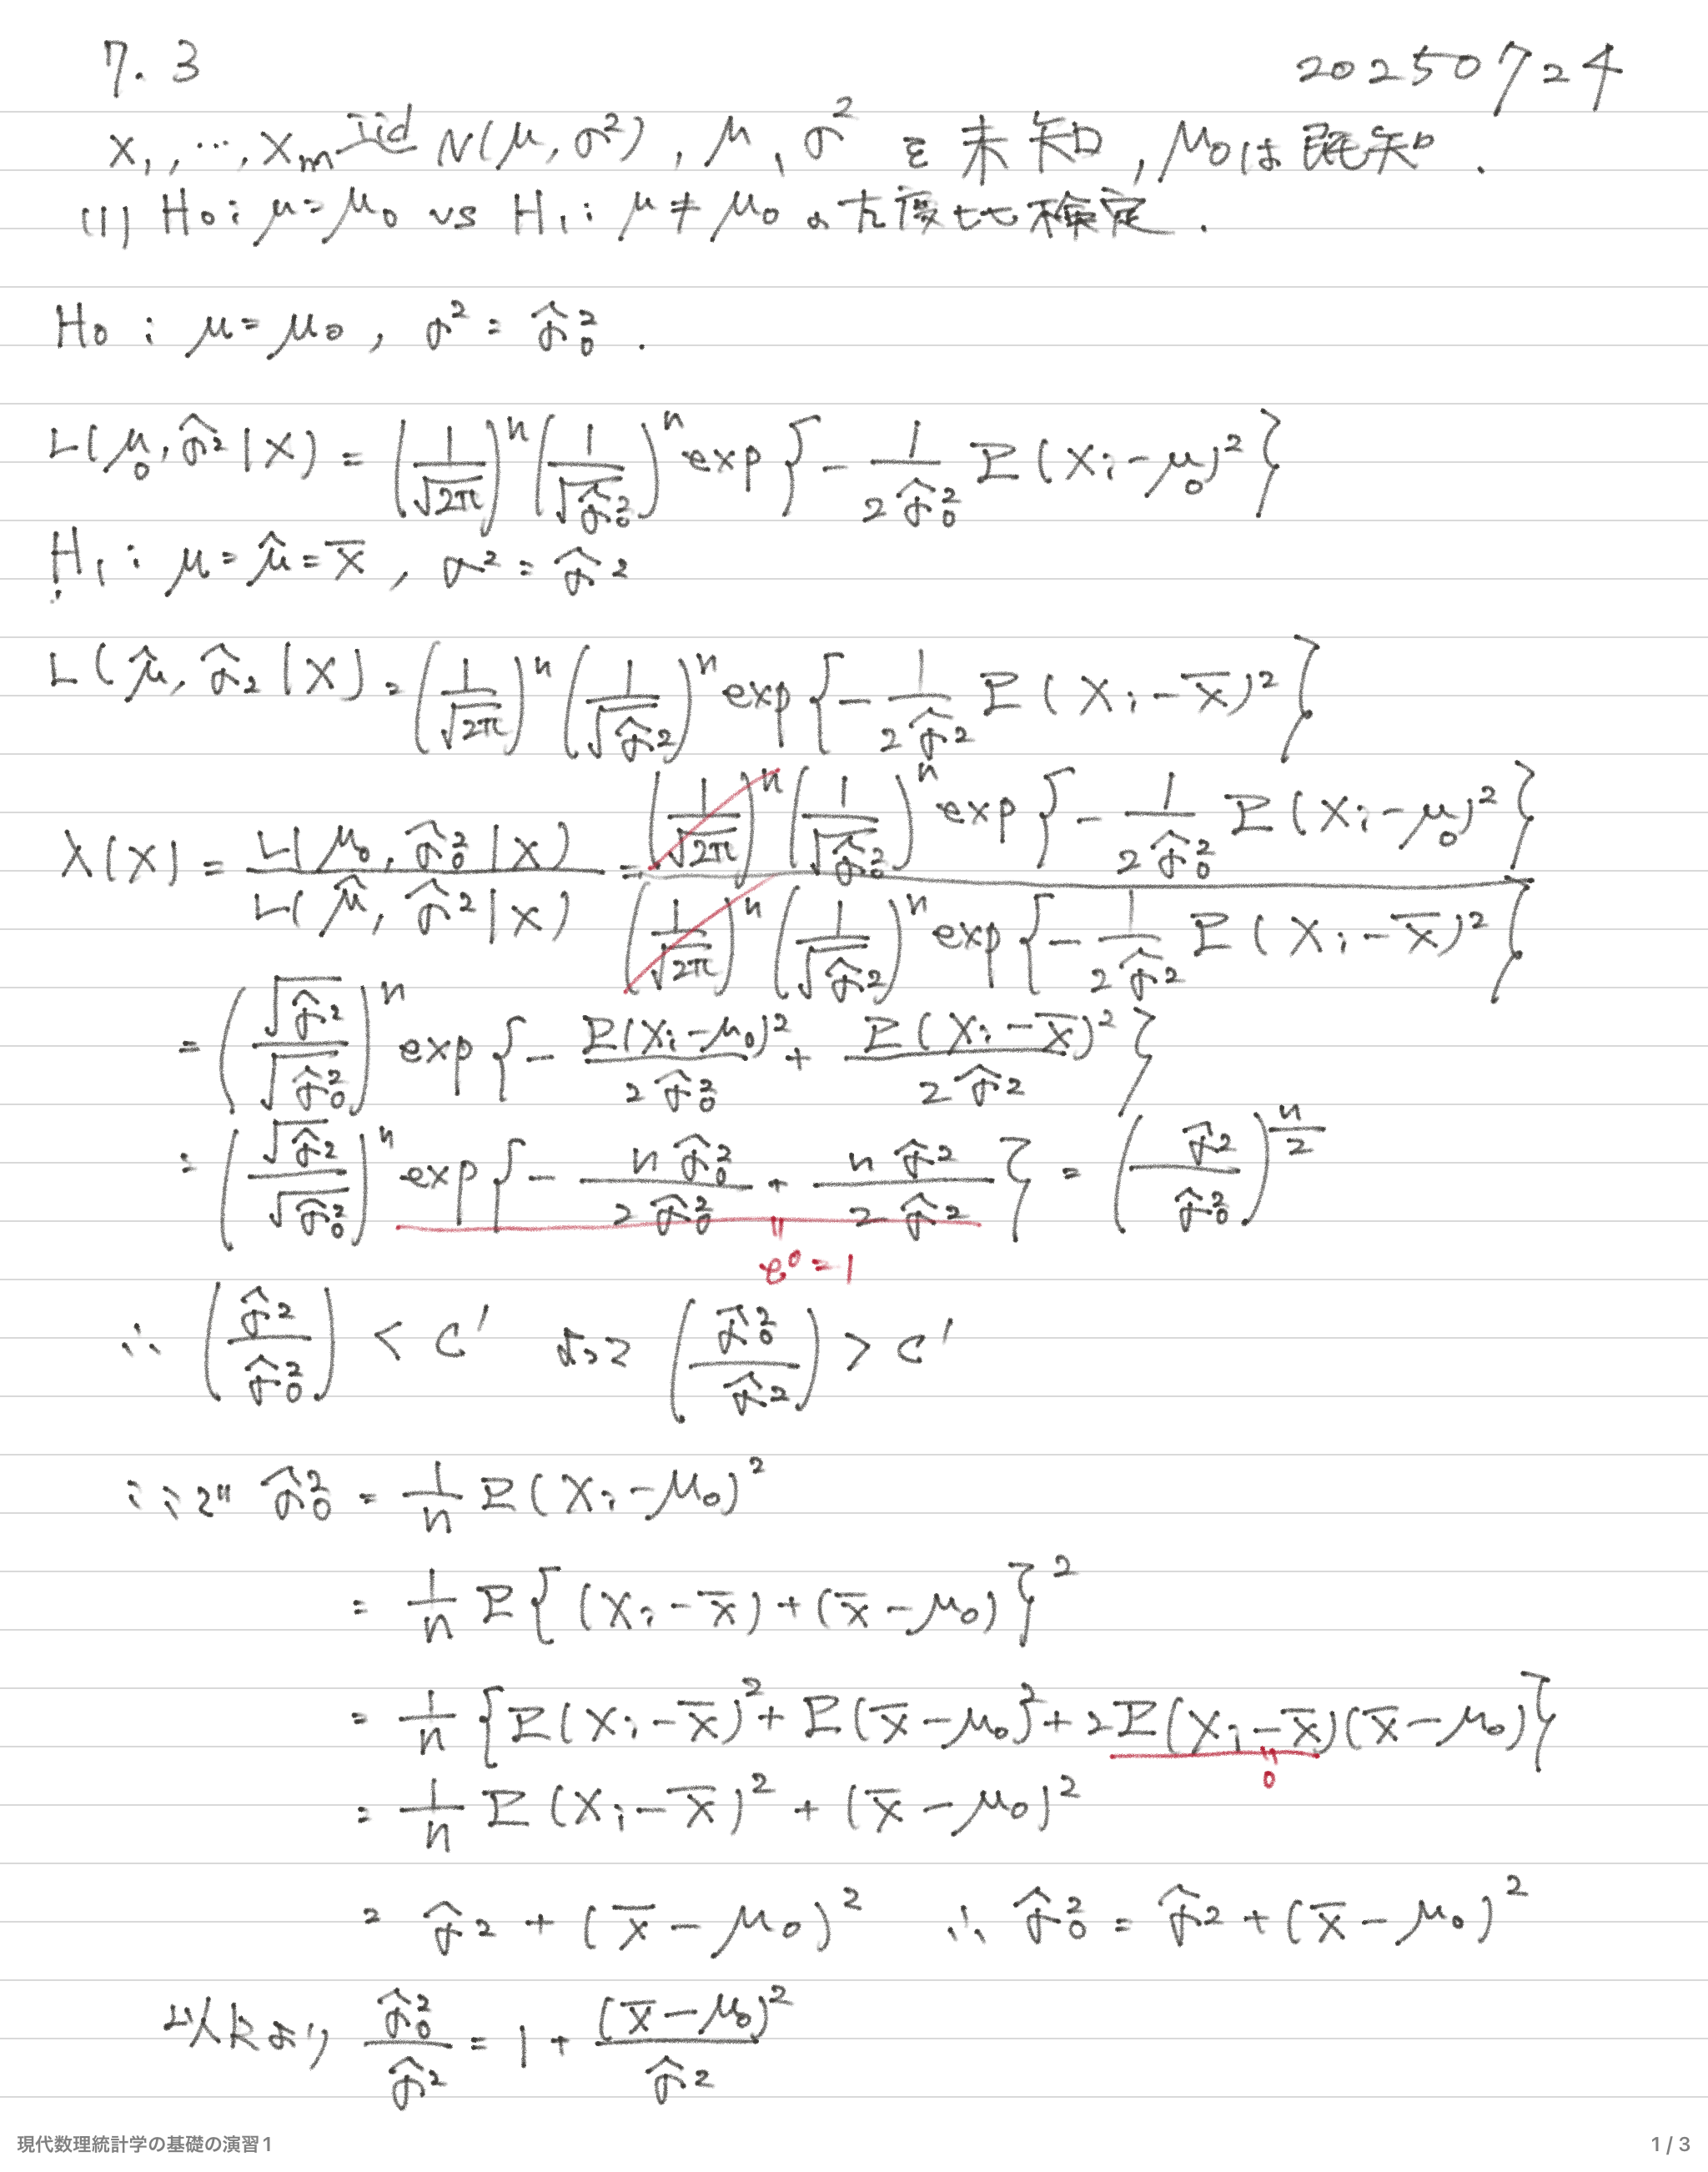 7.3 20250724
X₁, ⋯, Xₘ iid N(μ, σ²), μ, σ² を未知, μ₀は既知.
(1) H₀: μ=μ₀ vs H₁: μ≠μ₀ の尤度比検定.
H₀: μ=μ₀, σ²=σ̂₀².
L(μ₀, σ̂²|X) = (1/√2π)ⁿ (1/√σ̂₀²)ⁿ exp{-1/2σ̂₀² Σ(Xᵢ-μ₀)²}
H₁: μ=μ̂=x̄, σ²=σ̂²
L(μ̂, σ̂₂|X) = (1/√2π)ⁿ (1/√σ̂²)ⁿ exp{-1/2σ̂² Σ(Xᵢ-x̄)²}
λ(X) = L(μ₀, σ̂₀²|X) / L(μ̂, σ̂²|X) = (1/√2π)ⁿ (1/√σ̂₀²)ⁿ exp{-1/2σ̂₀² Σ(Xᵢ-μ₀)²} / (1/√2π)ⁿ (1/√σ̂²)ⁿ exp{-1/2σ̂² Σ(Xᵢ-x̄)²}
= (√σ̂² / √σ̂₀²)ⁿ exp{-Σ(Xᵢ-μ₀)² / 2σ̂₀² + Σ(Xᵢ-x̄)² / 2σ̂²}
= (√σ̂² / √σ̂₀²)ⁿ exp{-nσ̂₀² / 2σ̂₀² + nσ̂² / 2σ̂²} = (σ̂² / σ̂₀²)^(n/2)
e⁰=1
∴ (σ̂² / σ̂₀²) < C' よって (σ̂₀² / σ̂²) > C'
ここで σ̂₀² = 1/n Σ(Xᵢ-μ₀)²
= 1/n Σ{(Xᵢ-x̄)+(x̄-μ₀)}²
= 1/n {Σ(Xᵢ-x̄)² + Σ(x̄-μ₀)² + 2Σ(Xᵢ-x̄)(x̄-μ₀)}
0
= 1/n Σ(Xᵢ-x̄)² + (x̄-μ₀)²
= σ̂² + (x̄-μ₀)² ∴ σ̂₀² = σ̂² + (x̄-μ₀)²
以上より σ̂₀² / σ̂² = 1 + (x̄-μ₀)² / σ̂²
現代数理統計学の基礎の演習1 1 / 3